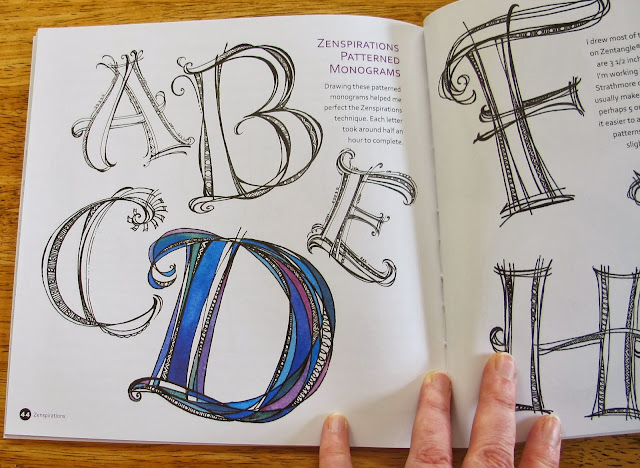 A B
ZENSPIRATIONS
PATTERNED
MONOGRAMS
Drawing these patterned
monograms helped me
perfect the Zenspirations
technique. Each letter
took around half an
hour to complete.
C D E
44 Zenspirations
F
I drew most of
on Zentangle
are 3 1/2
I'm working
Strathmore
usually make
perhaps 5
it easier to
H